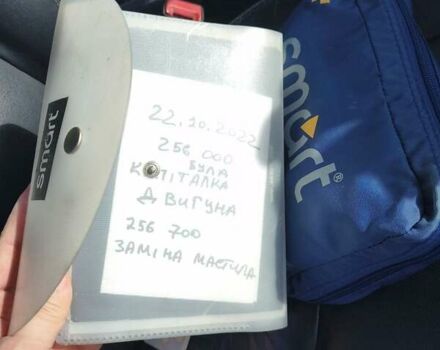 smart
22.10.2022
256 000
БУЛА
КАПІТАЛКА
ДВИГУНА
256 700
ЗАМІНА МАСТИЛА
smart®